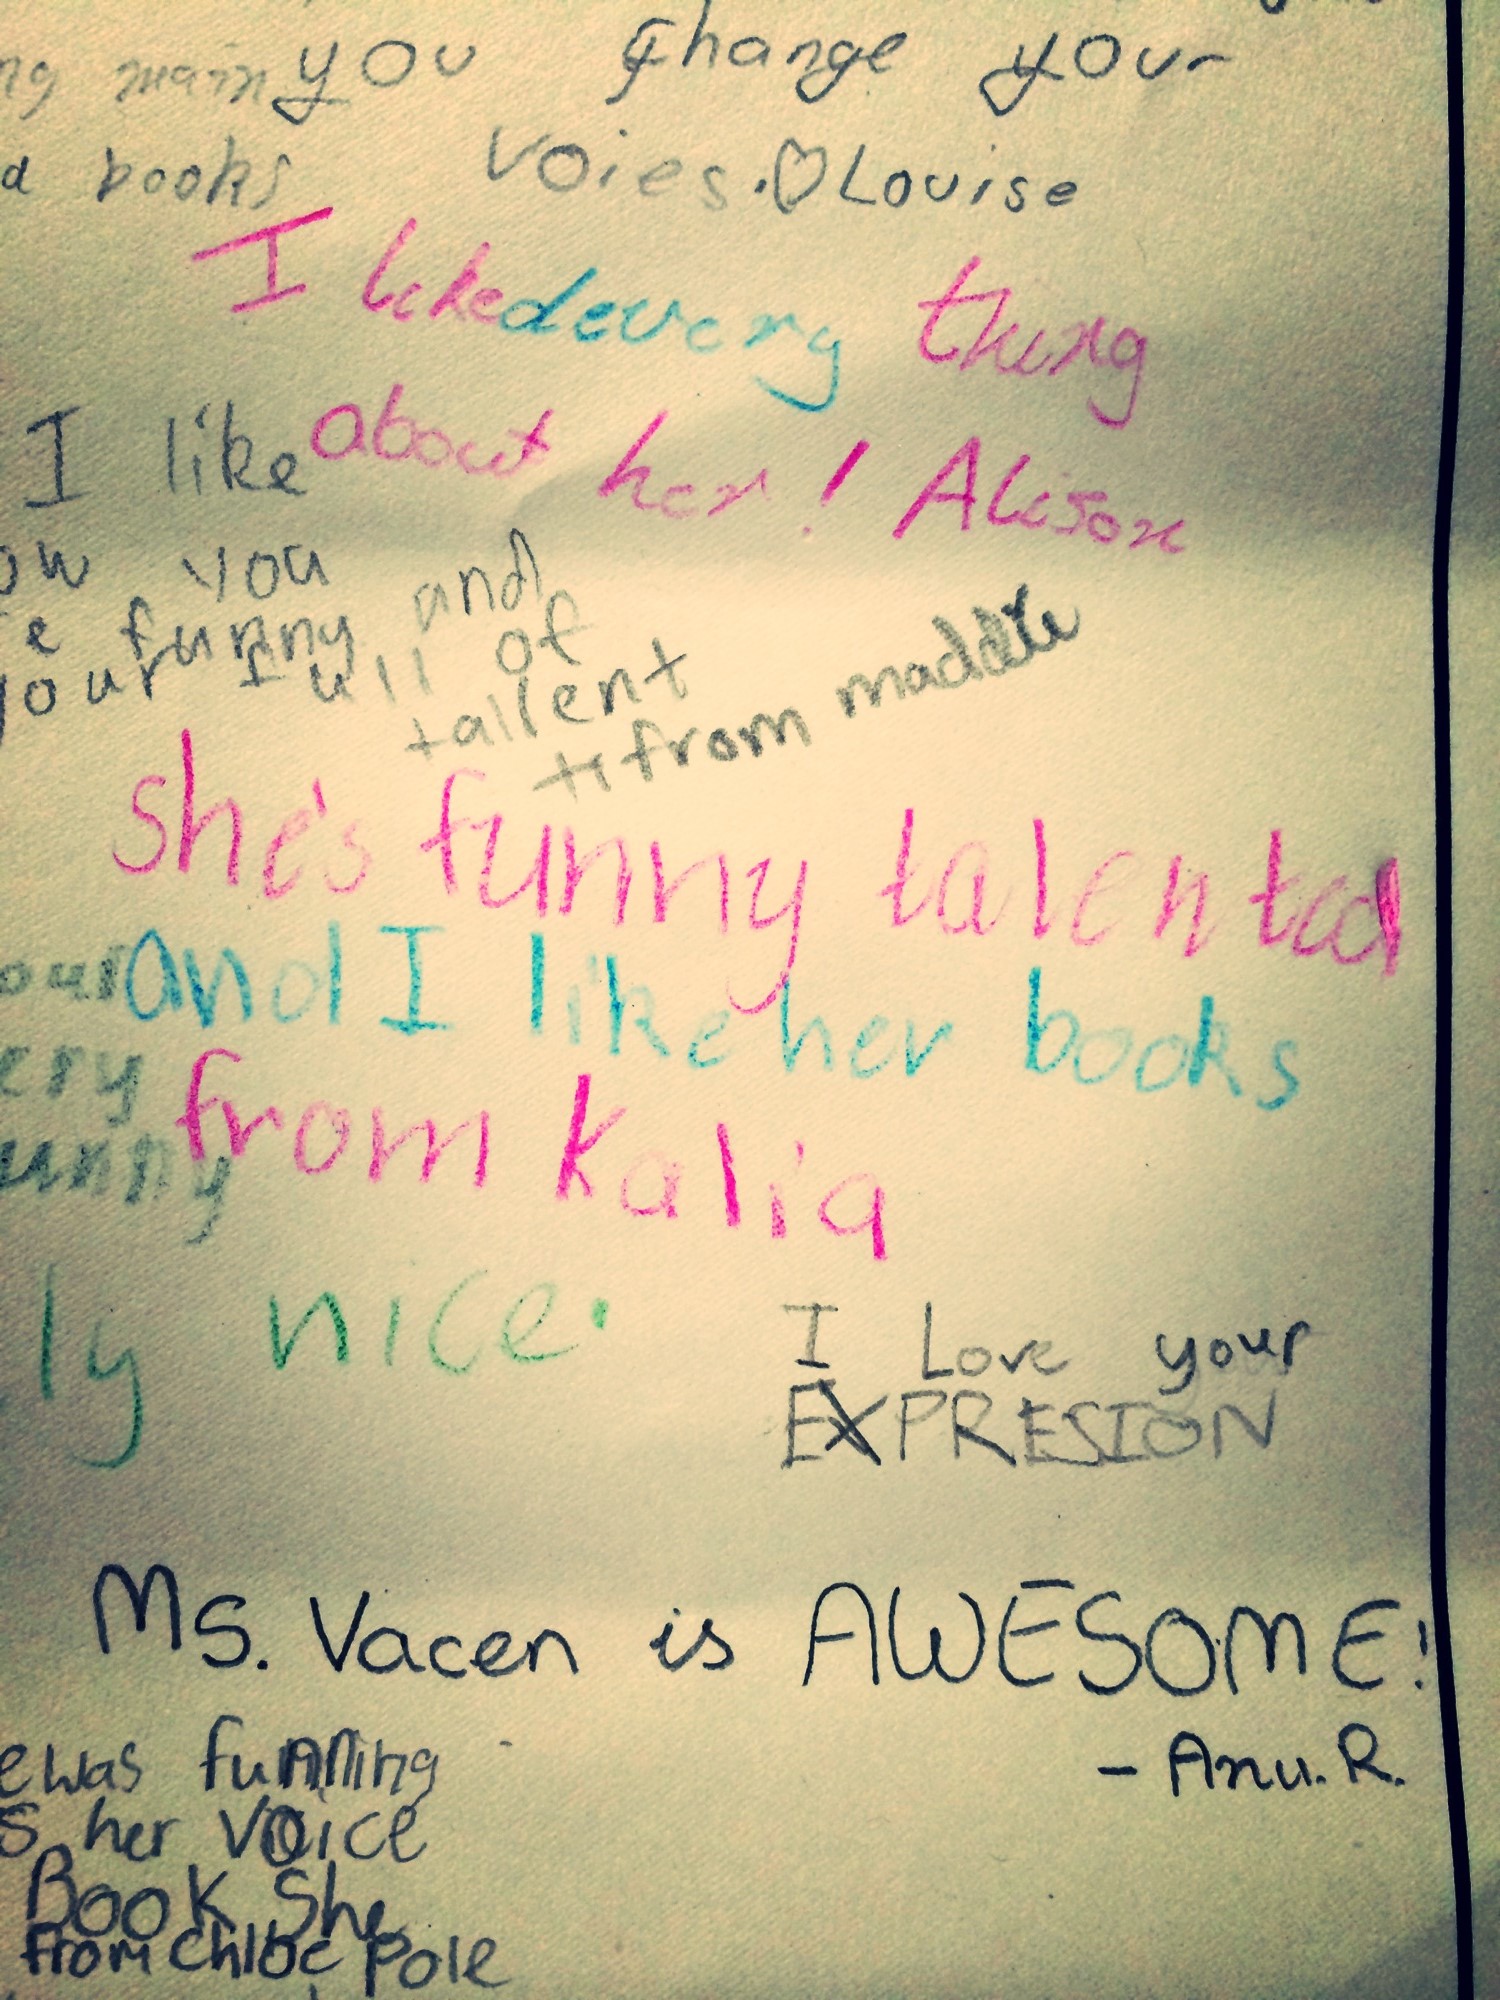 you change your
voies.♡Louise
books
I liked every thing
about her! Alison
I like
ow you
e funny and
your full of
tallent
from maddie
she's funny talented
and I like her books
from kalia
our
ery
unny
ly nice.
I Love your
EXPRESION
Ms. Vacen is AWESOME!
- Anu. R.
e was funning
s her voice
Book She
from chloe pole